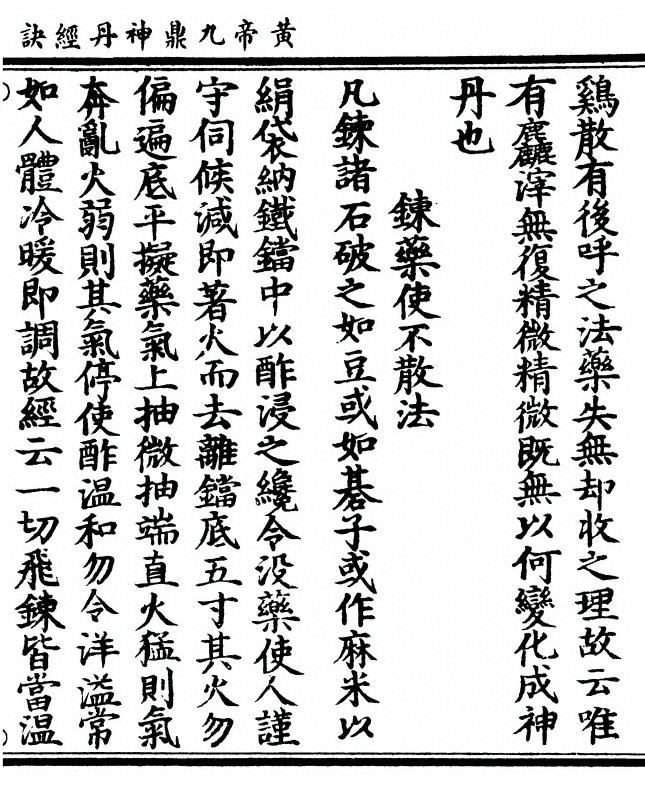 黃帝九鼎神丹經訣
鷄散有後呼之法藥失無却收之理故云唯
有麤滓無復精微精微既無以何變化成神
丹也
鍊藥使不散法
凡鍊諸石破之如豆或如碁子或作麻米以
絹袋納鐵鐺中以酢浸之纔令没藥使人謹
守伺候減即著火而去離鐺底五寸其火勿
偏遍底平擬藥氣上抽微抽端直火猛則氣
奔亂火弱則其氣停使酢温和勿令洋溢常
如人體冷暖即調故經云一切飛鍊皆當温